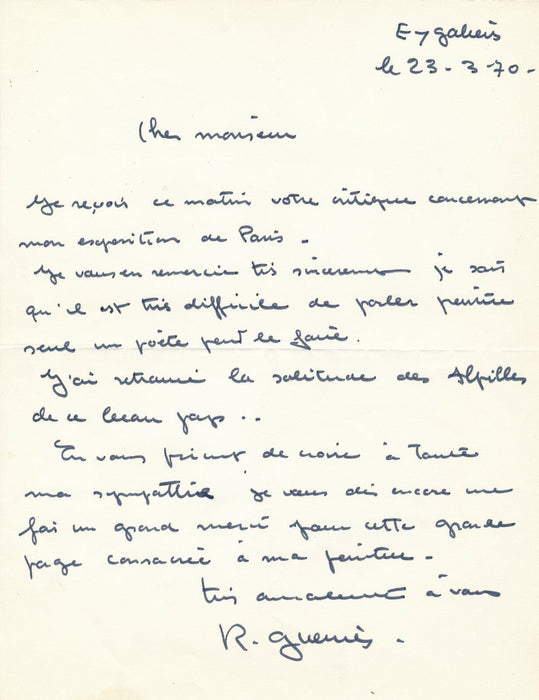 Eygalières
le 23-3-70-
Cher monsieur
Je reçois ce matin votre critique concernant
mon exposition de Paris.
Je vous en remercie très sincèrement je sais
qu'il est très difficile de parler peinture
seul un poète peut le faire.
J'ai retrouvé la solitude des Alpilles
de ce beau pays..
En vous priant de croire à toute
ma sympathie je vous dis encore une
fois un grand merci pour cette grande
page consacrée à ma peinture.
très amicalement à vous
R. Guerriès.